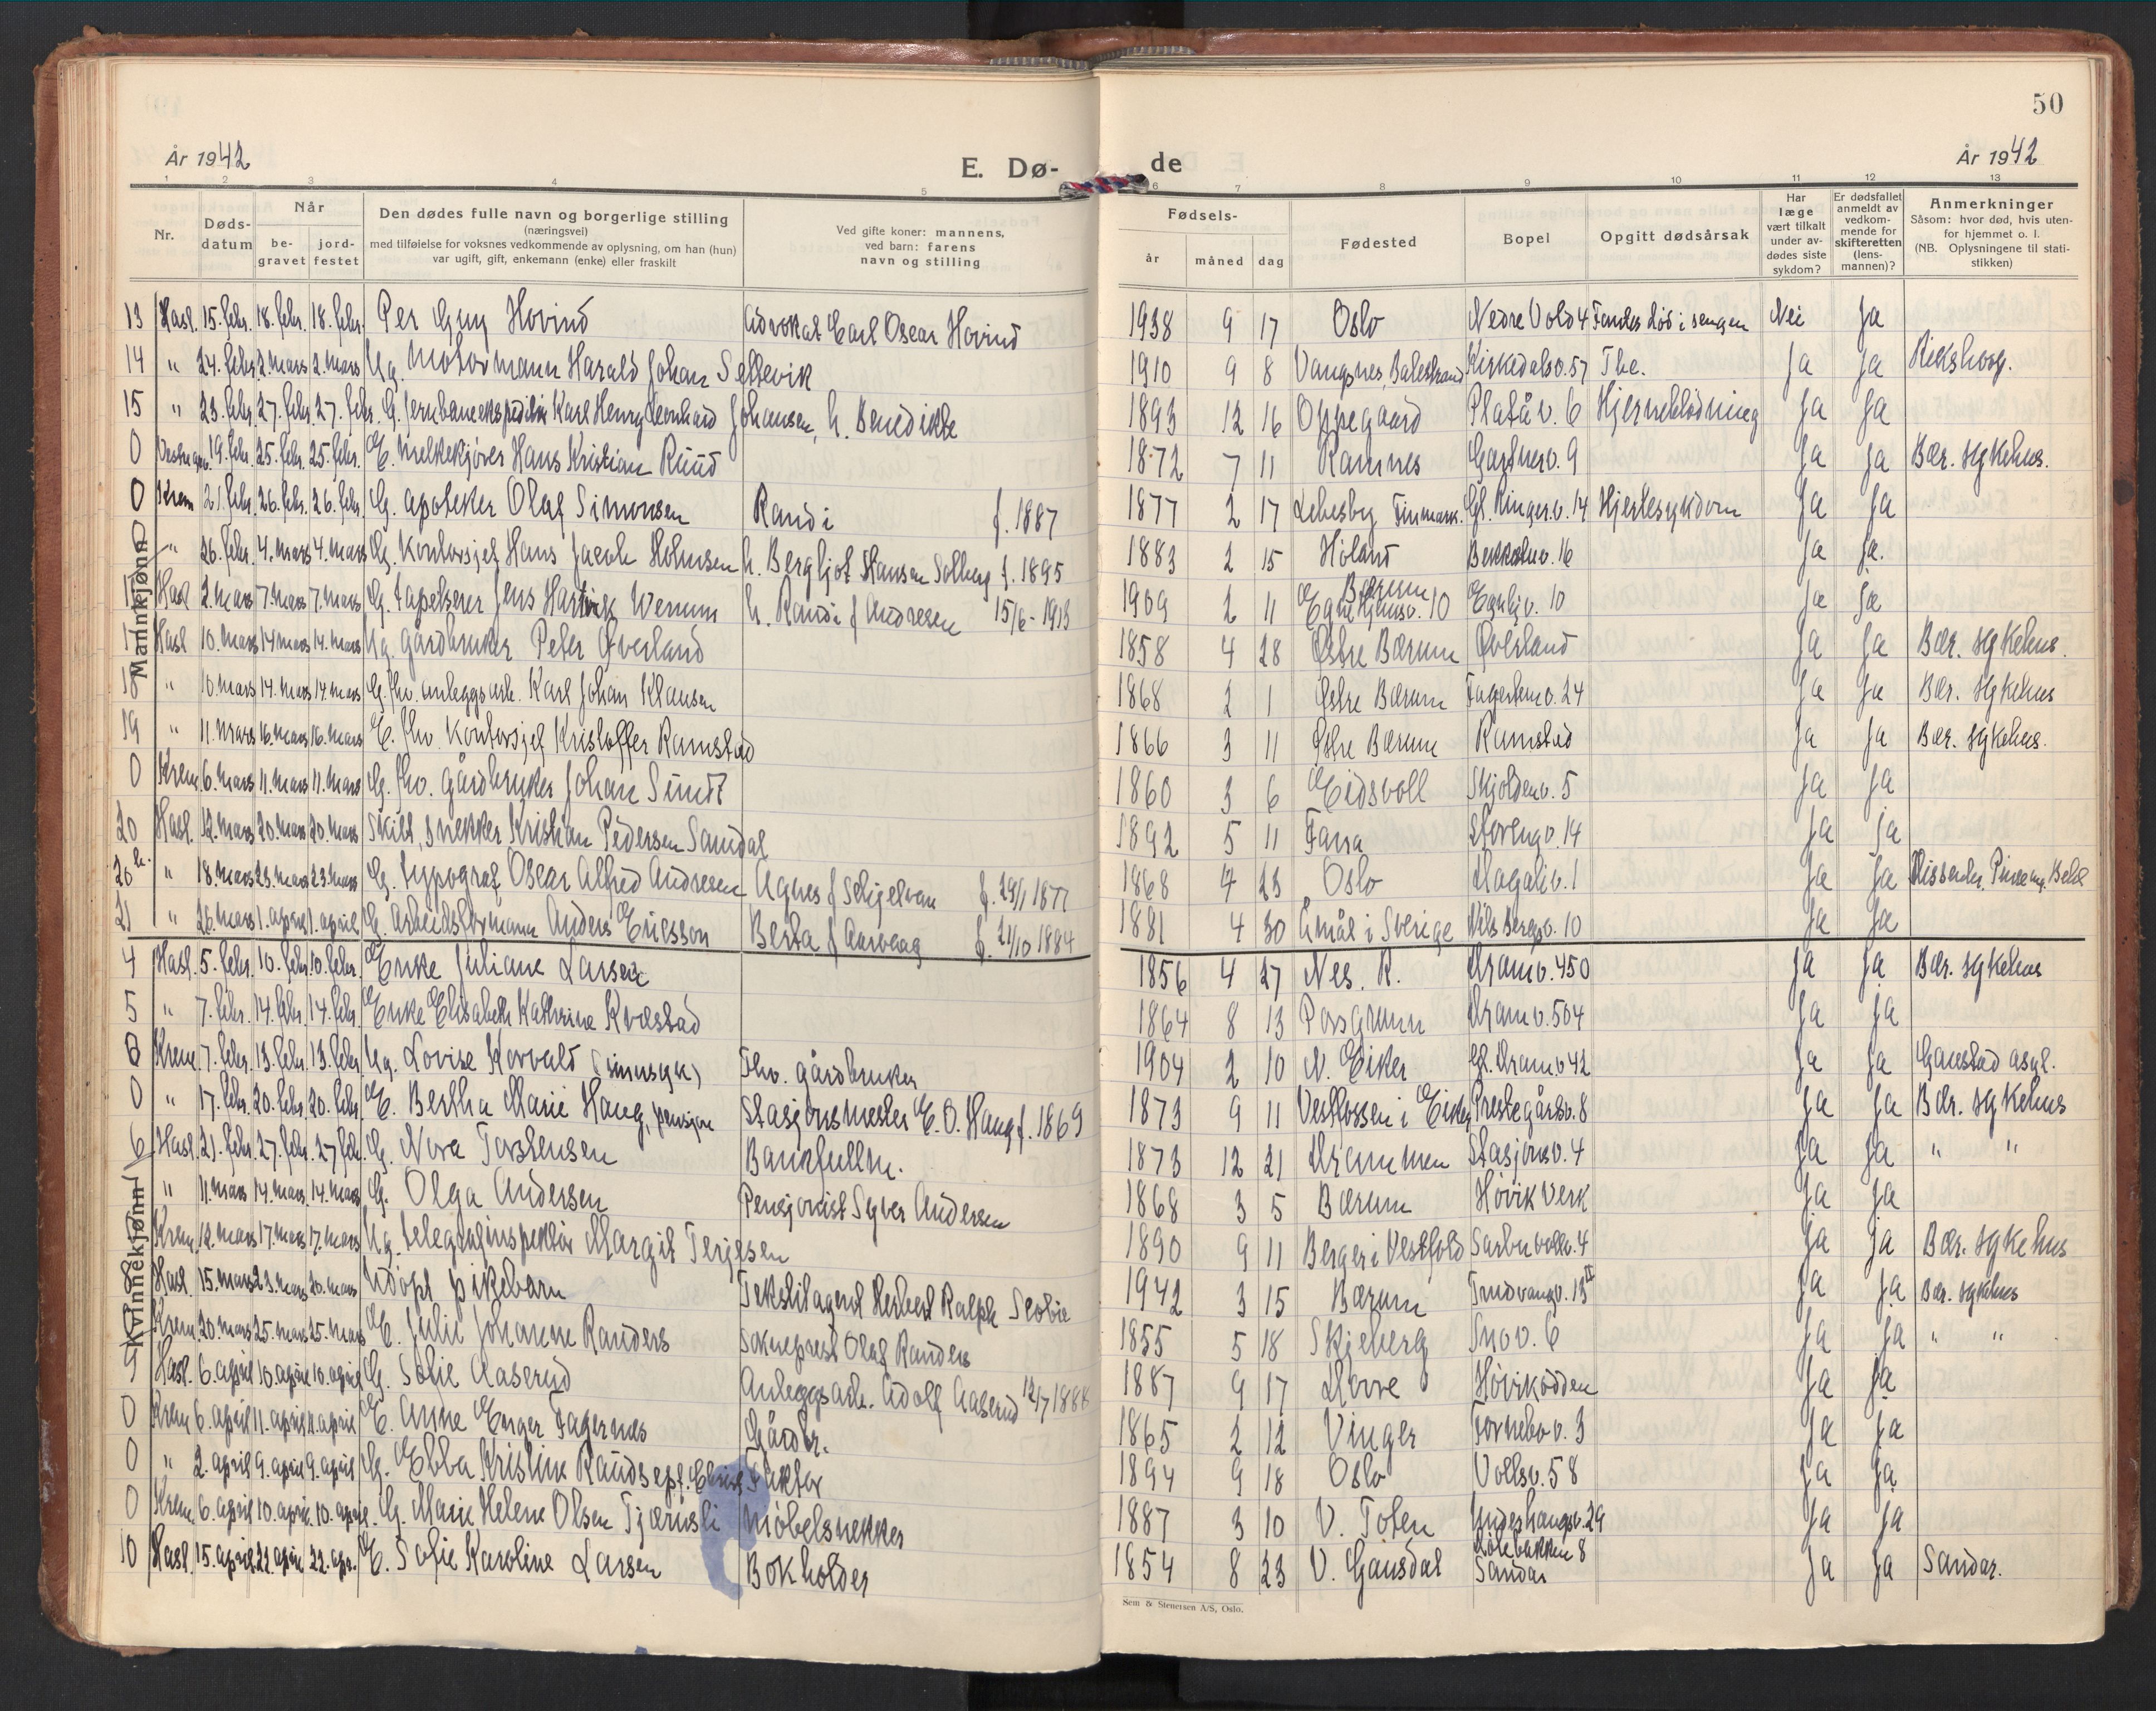 50
År 1942
E. Dø-
de
År 1942
1 2 3 4 5 6 7 8 9 10 11 12 13
Nr.
Døds-
datum
Når
be-
gravet
jord-
festet
Den dødes fulle navn og borgerlige stilling
(næringsvei)
med tilføielse for voksnes vedkommende av oplysning, om han (hun)
var ugift, gift, enkemann (enke) eller fraskilt
Ved gifte koner: mannens,
ved barn: farens
navn og stilling
Fødsels-
år
måned
dag
Fødested
Bopel
Opgitt dødsårsak
Har
læge
vært tilkalt
under av-
dødes siste
sykdom?
Er dødsfallet
anmeldt av
vedkom-
mende for
skifteretten
(lens-
mannen)?
Anmerkninger
Såsom: hvor død, hvis uten-
for hjemmet o. l.
(NB. Oplysningene til stati-
stikken)
Mannkjønn
13 Hasl. 15. febr. 18. febr. 18. febr. Per Guy Hovind Advokat Carl Oscar Hovind 1938 9 17 Oslo Nedre Voldv. 4 Fandes død i sengen Nei Ja
14 " 24. febr. 2. mars 2. mars Ug. Motormann Harald Johan Sellevik 1910 9 8 Vangsnes, Balestrand Kirkedalsv. 57 Tbc. Ja Ja Rikshosp.
15 " 23. febr. 27. febr. 27. febr. G. Jernbaneekspeditør Karl Henry Leonhard Johansen, h. Benedikte 1893 12 16 Oppegaard Platåv. 6 Hjerneblødning Ja Ja
0 Vestre grav. 19. febr. 25. febr. 25. febr. E. Melkekjører Hans Kristian Ruud 1872 7 11 Ramnes Gartnerv. 9 Ja Ja Bær. sykehus.
0 Krem 21. febr. 26. febr. 26. febr. G. apoteker Olaf Simonsen Randi f. 1887 1877 2 17 Lebesby Finmark. Gl. Ringer.v. 14 Hjertesykdom Ja Ja
" 26. febr. 4. mars 4. mars G. Kontorsjef Hans Jacob Holmsen h. Bergljot Hansen Solberg f. 1895 1883 2 15 Høland Bekkelv. 16 Ja Ja.
Hasl 2. mars 7. mars 7. mars G. tapetserer Jens Hartvik Wennum h. Randi f Andresen 15/6-1913 1909 2 11 Bærum Egne Hjemsv. 10 10 Ja Ja
Hasl 10. mars 14 mars 14. mars Ug. gårdbruker Peter Øverland 1858 4 28 Østre Bærum Øverland Ja Ja Bær. sykehus.
18 " 10. mars 14. mars 14. mars G. fhv. anleggsarb. Karl Johan Klausen 1868 2 1 Østre Bærum 24 Ja Ja Bær. sykehus
19 " 11. mars 16. mars 16. mars E. fhv. Kontorsjef Kristoffer Ramstad 1866 3 11 Østre Bærum Ramstad Ja Ja Bær. sykehus.
0 Krem 6. mars 11. mars 11. mars G. fhv. gårdbruker Johan Sundt 1860 3 6 Eidsvoll Skjoldenv. 5 Ja Ja
20 Hasl. 12. mars 20. mars 20. mars Skilt, snekker Kristian Pedersen Sandal 1892 5 11 Fana Storengv. 14 Ja Ja
20 b. " 18. mars 23. mars 23. mars G. typograf Oscar Alfred Andresen Agnes f Schjelvan f. 29/1 1877 1868 4 23 Oslo Hagaliv. 1 Ja Ja
21 " 26. mars 1. april 1. april G. Arbeidsformann Anders Ericsson Berta f Aarvaag f. 21/10 1884 1881 4 30 Åmål i Sverige Nils Bergsv. 10 Ja Ja
Kvinnekjønn
4 Hasl. 5. febr. 10. febr. 10. febr. Enke Juliane Larsen 1856 4 27 Nes. R. Dramv. 450 Ja Ja Bær. sykehus
5 " 7. febr. 14. febr. 14. febr. Enke Elisabeth Kathrine Kvæstad 1864 8 13 Porsgrunn Dramv. 504 Ja Ja
0 Krem 7. febr. 13. febr. 13. febr. Ug. Lovise Korvald (sinnsyk) Fhv. gårdbruker 1904 2 10 N. Eiker Gl. Dramv 42 Ja Ja Gaustad asyl.
0 " 17. febr. 20. febr. 20. febr. E. Bertha Marie Haug, pensjon Stasjonsmester E. O. Haug f. 1869 1873 9 11 Vestfossen i Eiker Prestegårdsv. 8 Ja Ja Bær. sykehus
6 Hasl. 21. febr. 27. febr. 27 febr. G. Nora Torstensen Bankfullm. 1873 12 21 Drammen Stasjonsv. 4 Ja Ja " "
" 11. mars 14. mars 14. mars G. Olga Andersen Pensjonist Syver Andersen 1868 3 5 Bærum Høvik Verk Ja Ja
Krem. 12. mars 17. mars 17. mars Ug. telegrafinspektør Margit Terjesen 1890 9 11 Berger i Vestfold Sarbuvollv. 4 Ja Ja Bær. sykehus
8 Hasl 15. mars 23. mars 20. mars Udøpt pikebarn Tekstilagent Herbert Ralph Scobie 1942 3 15 Bærum Trudvangv. 13 II Ja Ja Bær. sykehus
Krem. 20. mars 25. mars 25. mars E. Julie Johanne Randers Sokneprest Olaf Randers 1855 5 18 Skjeberg Snov. 6 Ja Ja " "
9 Hasl. 6. april 10. april 10. april G. Sofie Aaserud Anleggsarb. Adolf Aaserud 12/7 1888 1887 9 17 Høvikodden Ja Ja
0 Krem 6. april 11. april 11. april E. Anne Enger Fagernes Gårdbr. 1865 2 12 Vinger Fornebov. 3 Ja Ja
0 " 2. april 9. april 9. april G. Ebba Kristine Faktor 1894 9 18 Oslo Vollsv. 58 Ja Ja
0 Krem 6. april 10. april. 10. april. G. Marie Helene Olsen Tjærnsli Møbelsnekker 1887 3 10 V. Toten 29 Ja Ja
10 Hasl. 15. april 22. april 22. apr. E. Sofie Karoline Larsen Bokholder 1854 8 23 V. Gausdal 8 Sandar Ja Ja Sandar.
Sem & Stenersen A/S, Oslo.